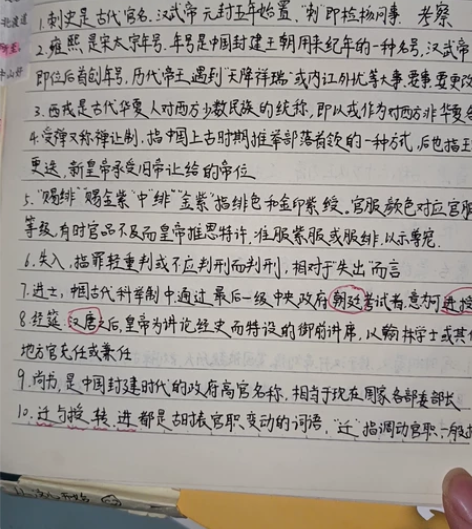 1.刺史是古代官名.汉武帝元封五年始置、"刺"即检核问事. 考察
2.雍熙是宋太宗年号.年号是中国封建王朝用来纪年的一种名号,汉武帝
即位后首创年号,历代帝王遇到"天降祥瑞"或内讧外忧等大事.要事.要更改
3.西戎是古代华夏人对西方少数民族的统称,即以戎作为对西方非华夏
4.受禅又称禅让制,指中国上古时期推举部落首领的一种方式,后也指王
更迭,新皇帝承受旧帝让给的帝位
5."赐绯"赐金紫"中"绯""金紫"指绯色和金印紫绶。官服颜色对应官服
等级,有时官品不及而皇帝推恩特许,准服紫服或服绯.以示尊宠.
6.失入,指罪轻重判或不应判刑而判刑,相对于"失出"而言
7.进士,中国古代科举制中通过最后一级中央政府朝廷考试者.意为可进授
8.经筵.汉唐以后,皇帝为讲论经史而特设的御前讲席,以翰林学士或其他
地方官充任或兼任
9.尚书,是中国封建时代的政府高官名称,相当于现在国家各部委部长
10.迁与授、转、进都是古时表官职变动的词语,"迁"指调动官职,一般